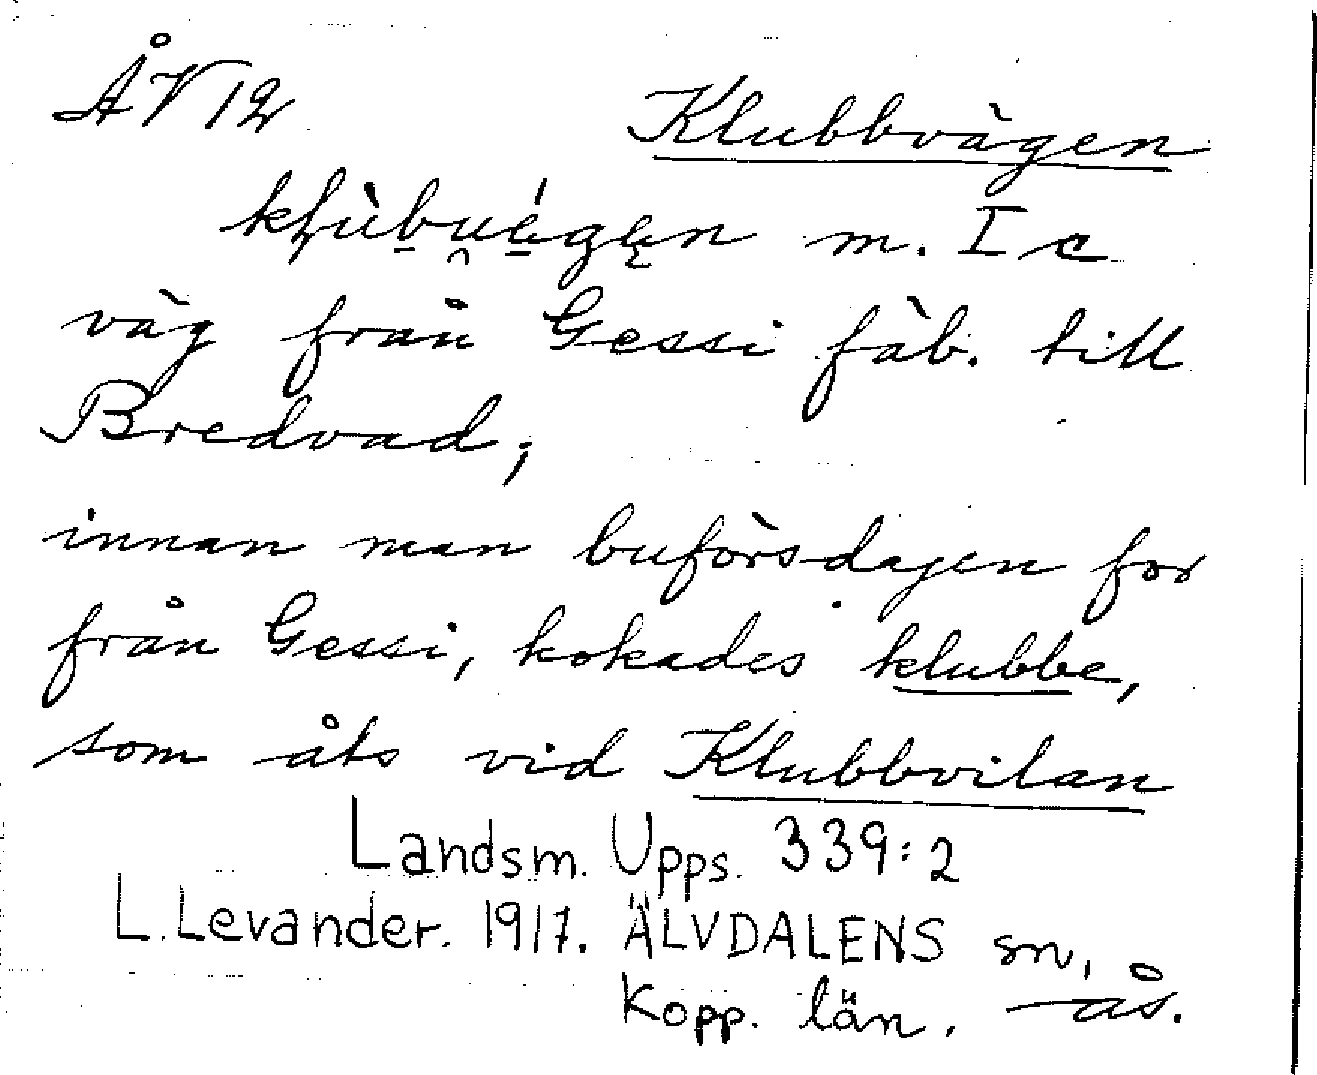 ÅV12 Klubbvägen
m. I c
väg från Gessi fäb. till
Bredvad;
innan man buförsdagen for
från Gessi, kokades klubbe,
som åts vid Klubbvilan
Landsm. Upps. 339:2
L. Levander. 1917. ÄLVDALENS sn,
Kopp. län. ås.